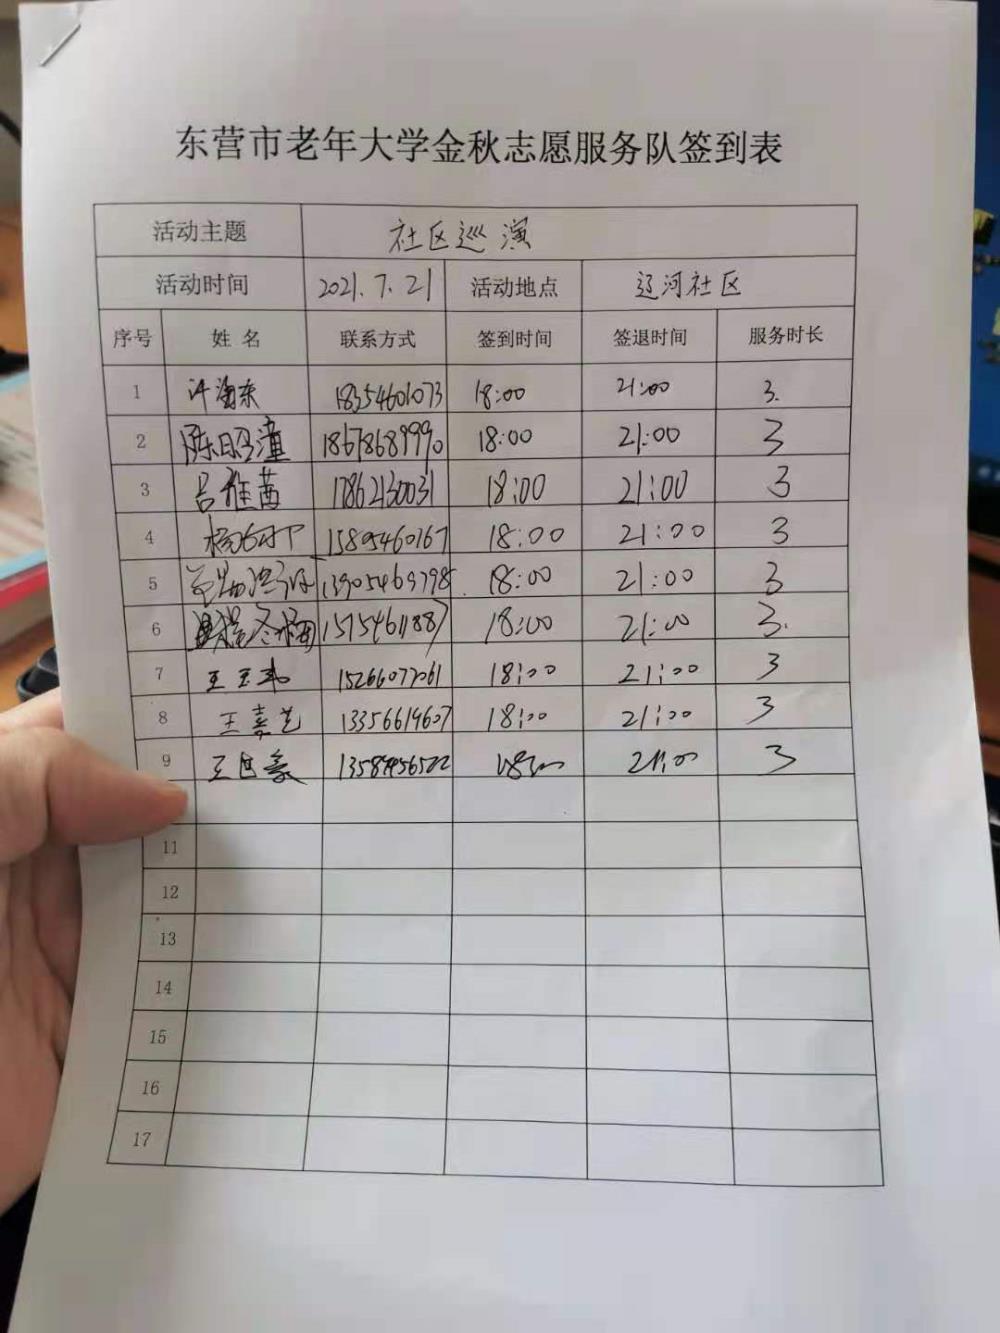 东营市老年大学金秋志愿服务队签到表
活动主题 社区巡演
活动时间 2021.7.21 活动地点 辽河社区
序号 姓名 联系方式 签到时间 签退时间 服务时长
1 许海东 18354601073 18:00 21:00 3.
2 陈昭潼 18678689990 18:00 21:00 3
3 吕雅茜 17862130031 18:00 21:00 3
4 15895460767 18:00 21:00 3
5 18:00 21:00 3
6 18:00 21:00 3.
7 王玉 15266077061 18:00 21:00 3
8 王嘉艺 13356619607 18:00 21:00 3
9 王 18:00 21:00 3
11
12
13
14
15
16
17